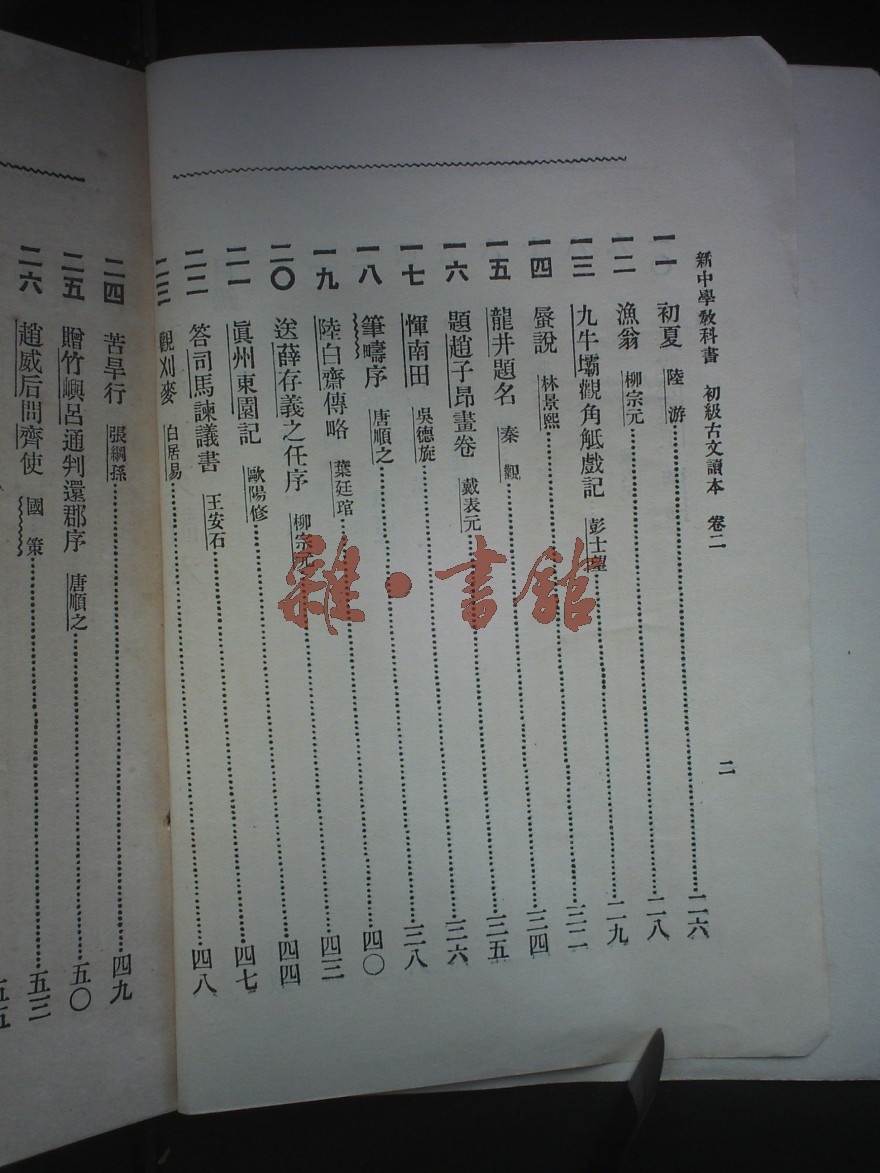 新中學敎科書　初級古文讀本　卷二　二
一一　初夏　陸游……二六
一二　漁翁　柳宗元……二八
一三　九牛壩觀角觝戲記　彭士望……二九
一四　蜃說　林景熙……三二
一五　龍井題名　秦觀……三四
一六　題趙子昂畫卷　戴表元……三五
一七　惲南田　吳德旋……三六
一八　筆疇序　唐順之……三八
一九　陸白齋傳略　葉廷琯……四〇
二〇　送薛存義之任序　柳宗元……四三
二一　眞州東園記　歐陽修……四四
二二　答司馬諫議書　王安石……四七
二三　觀刈麥　白居易……四八
二四　苦旱行　張綱孫……四九
二五　贈竹嶼呂通判還郡序　唐順之……五〇
二六　趙威后問齊使　國策……五三
五五
雜·書館